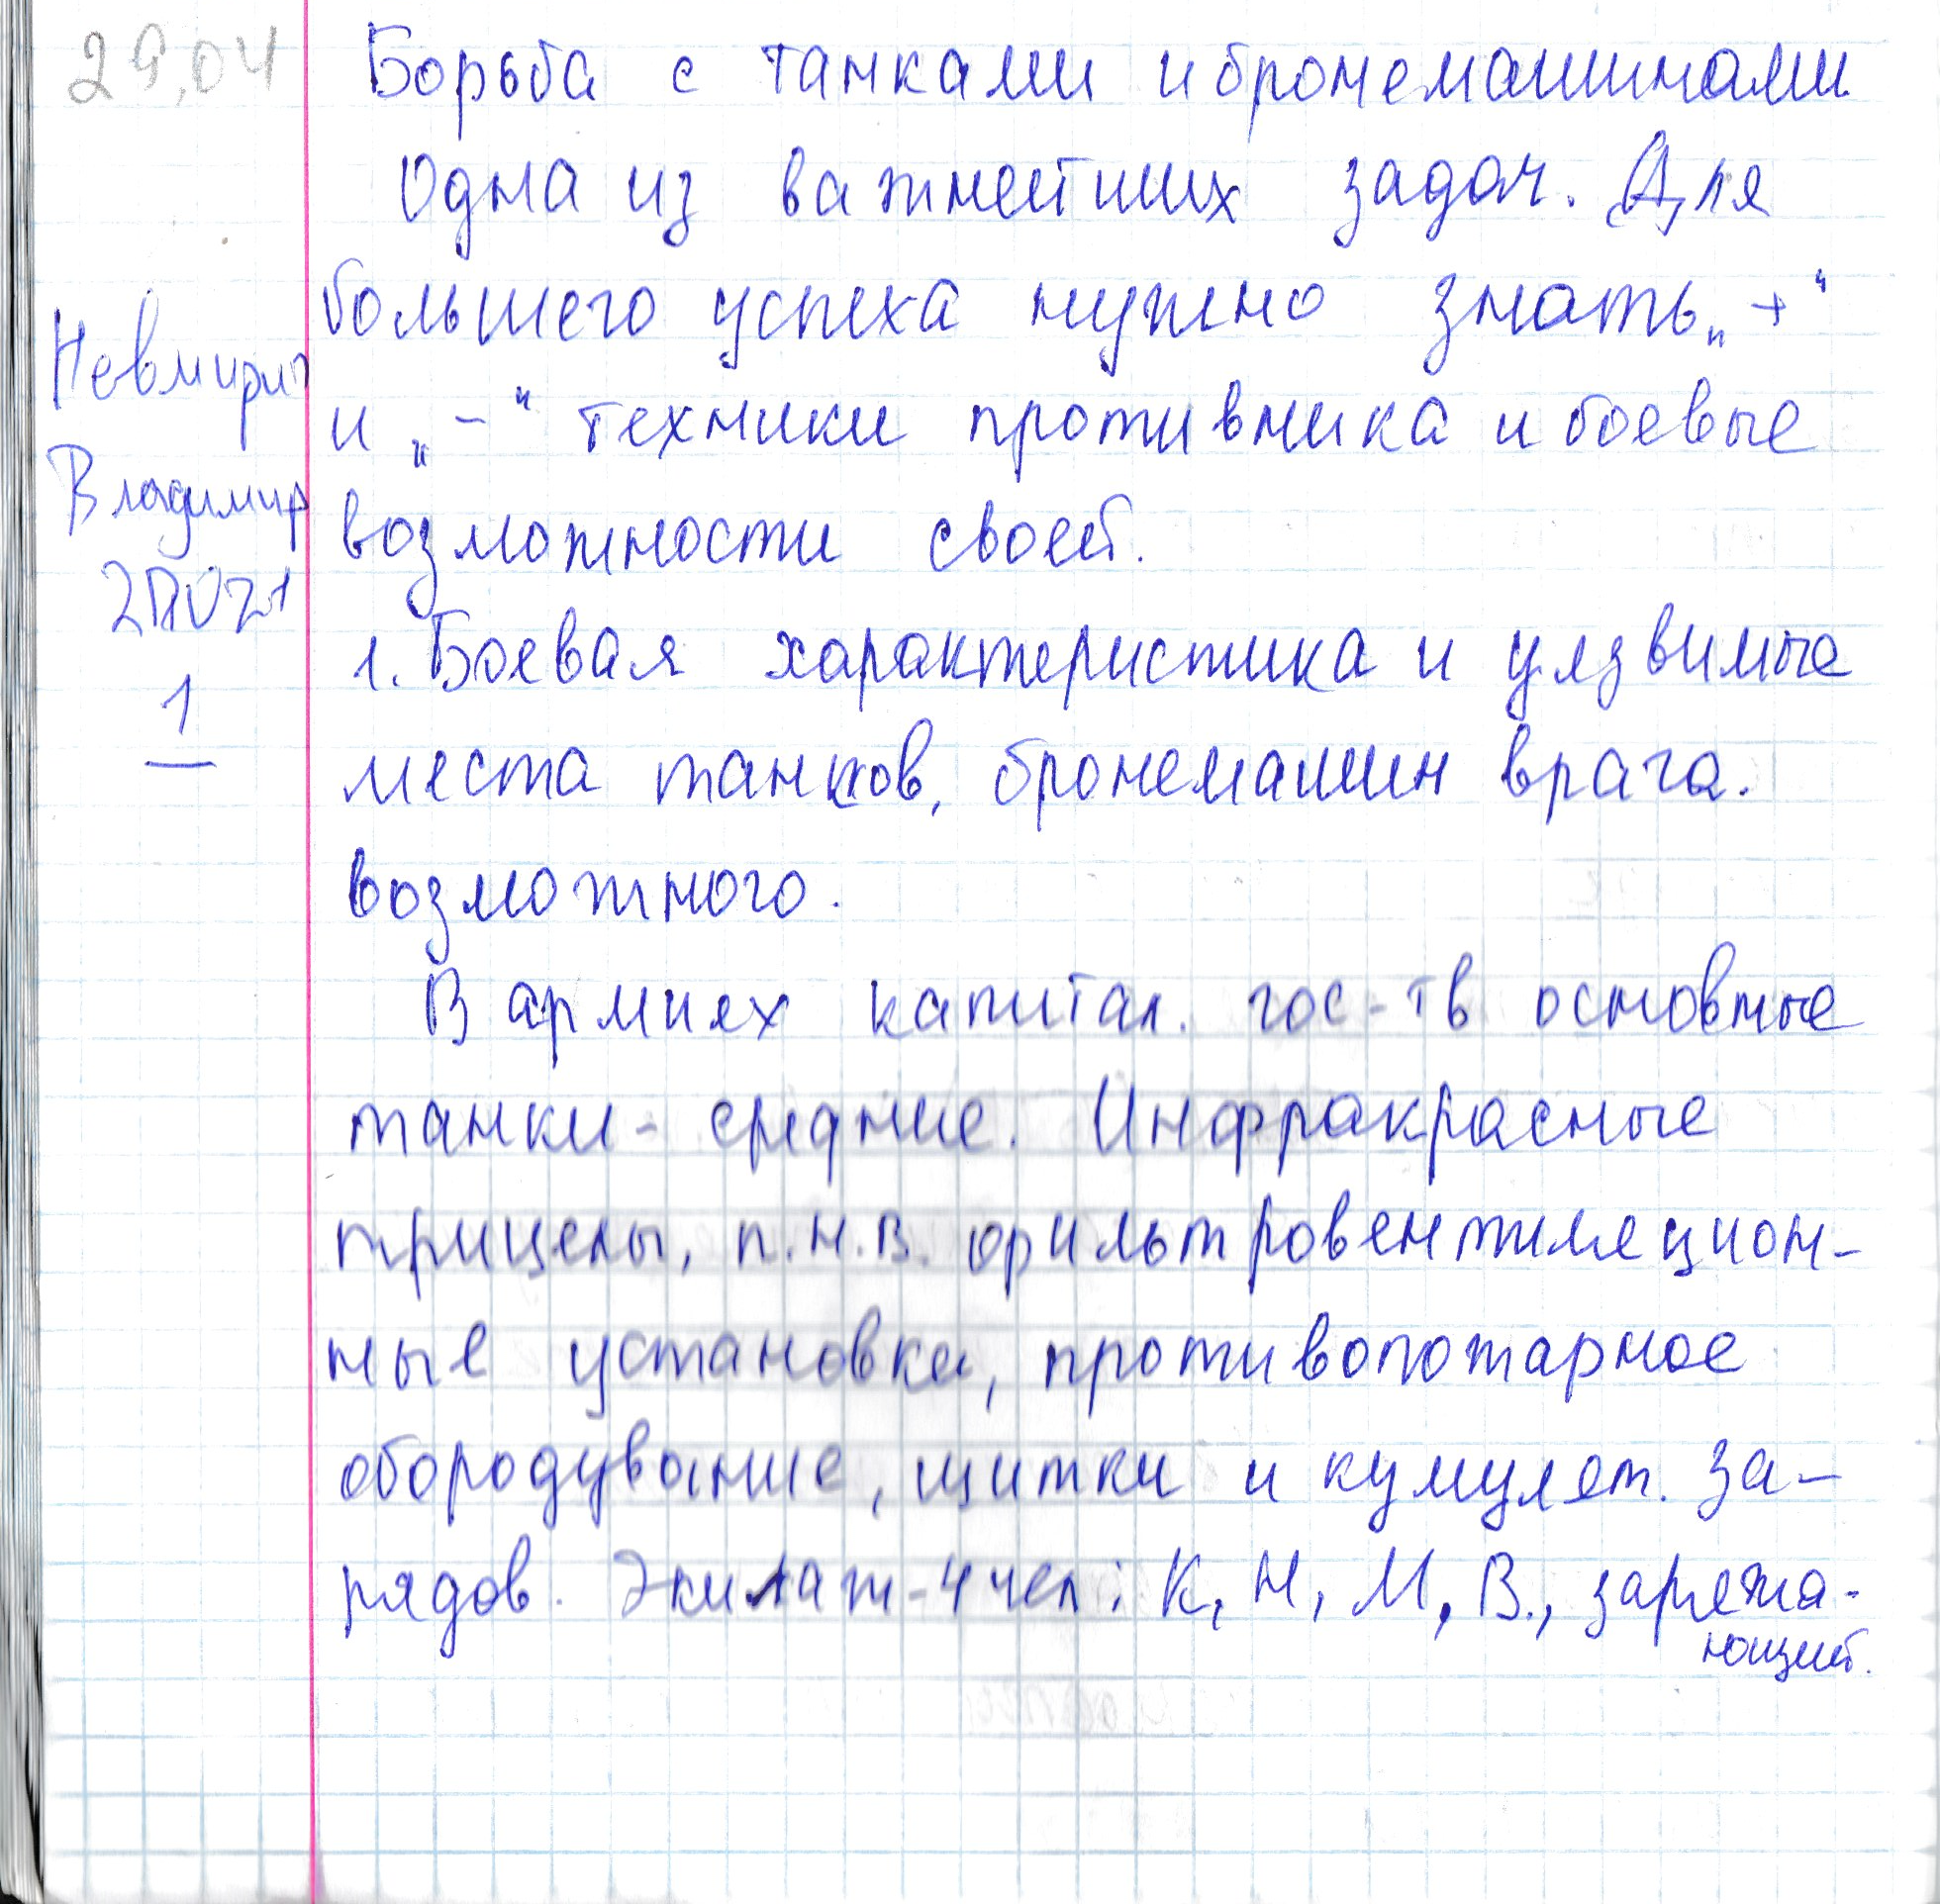 29,04
Борьба с танками и бронемашинами.
Одна из важнейших задач. Для
большего успеха нужно знать „+“
и „-“ техники противника и боевые
возможности своей.
1. Боевая характеристика и уязвимые
места танков, бронемашин врага.
возможного.
В армиях капитал. гос-тв основные
танки - средние. Инфракрасные
прицелы, п.н.в. фильтровентиляцион-
ные установки, противопожарное
обородувание, щитки и кумулят. за-
рядов. Экипаж - 4 чел: К, Н, М, В., заряжа-
ющий.
Владимир
1